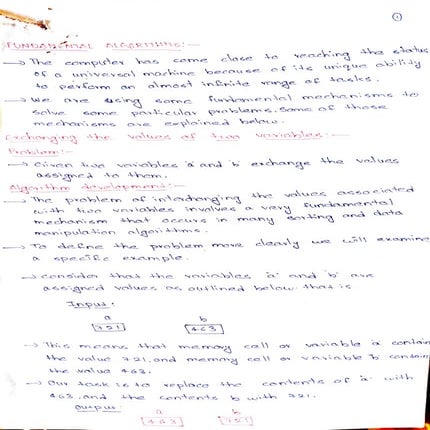 ①
FUNDAMENTAL ALGORITHMS:-
→ The computer has come close to reaching the status
of a universal machine because of its unique ability
to perform an almost infinite range of tasks.
→ We are using some fundamental mechanisms to
solve some particular problems. Some of those
mechanisms are explained below.
Exchanging the values of two variables:-
Problem:-
→ Given two variables 'a' and 'b' exchange the values
assigned to them.
Algorithm development:-
→ The problem of interchanging the values associated
with two variables involves a very fundamental
mechanism that occurs in many sorting and data
manipulation algorithms.
→ To define the problem more clearly we will examine
a specific example.
→ consider that the variables 'a' and 'b' are
assigned values as outlined below. that is
Input:
a b
721 463
→ This means that memory cell or variable 'a' contain
the value 721, and memory cell or variable 'b' contains
the value 463.
→ Our task is to replace the contents of 'a' with
463, and the contents b with 721.
Output:
a b
463 721